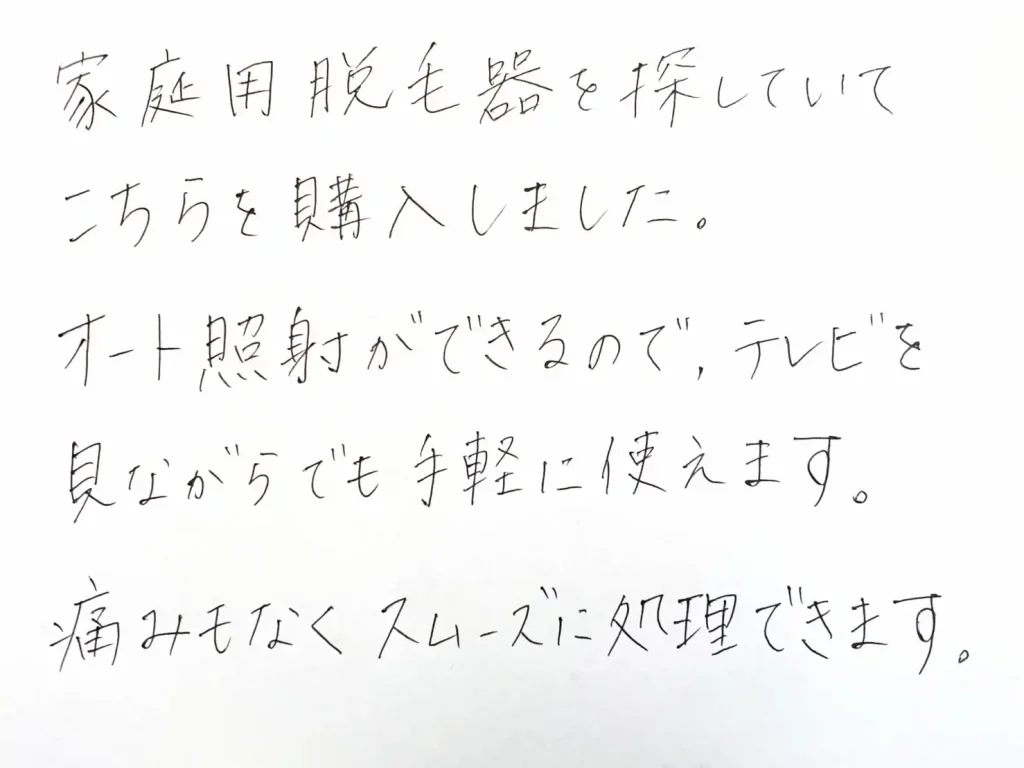 家庭用脱毛器を探していて
こちらを購入しました。
オート照射ができるので,テレビを
見ながらでも手軽に使えます。
痛みもなくスムーズに処理できます。